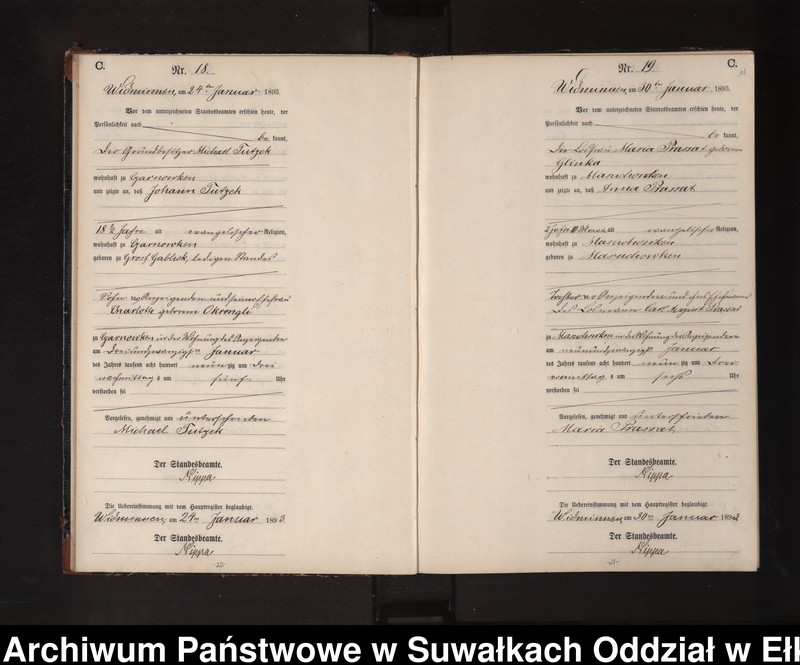 C.
Nr. 18.
Widminnen, am 24ten Januar 1893.
Vor dem unterzeichneten Standesbeamten erschien heute, der
Persönlichkeit nach
be kannt,
Der Grundbesitzer Michael Tutzek
wohnhaft zu Garnowken
und zeigte an, daß Johann Tutzek
18 1/2 Jahre alt evangelischer Religion,
wohnhaft zu Garnowken
geboren zu Groß Gablick, ledigen Standes
Sohn des Anzeigenden und seiner Ehefrau
Charlotte geborene Okrongli
zu Garnowken in der Wohnung des Anzeigenden
am dreiundzwanzigsten Januar
des Jahres tausend acht hundert neunzig und drei
nachmittag s um fünf Uhr
verstorben sei
Vorgelesen, genehmigt und unterschrieben
Michael Tutzek
Der Standesbeamte.
Nippa
Die Uebereinstimmung mit dem Hauptregister beglaubigt.
Widminnen, am 24ten Januar 1893.
Der Standesbeamte.
Nippa
-20-
C.
Nr. 19.
Widminnen, am 30ten Januar 1893.
Vor dem unterzeichneten Standesbeamten erschien heute, der
Persönlichkeit nach
be kannt,
Die Losfrau Maria Prassat geborene
Glinka
wohnhaft zu
und zeigte an, daß Anna Prassat
2 Jahre 10 Monat alt evangelischer Religion,
wohnhaft zu
geboren zu
Tochter der Anzeigenden und ihres Ehemanns
des Losmann Carl August Prassat
zu in der Wohnung der Anzeigenden
am neunundzwanzigsten Januar
des Jahres tausend acht hundert neunzig und drei
vormittag s um sechs Uhr
verstorben sei
Vorgelesen, genehmigt und unterschrieben
Maria Prassat
Der Standesbeamte.
Nippa
Die Uebereinstimmung mit dem Hauptregister beglaubigt.
Widminnen, am 30ten Januar 1893
Der Standesbeamte.
Nippa
-21-
Archiwum Państwowe w Suwałkach Oddział w Ełk